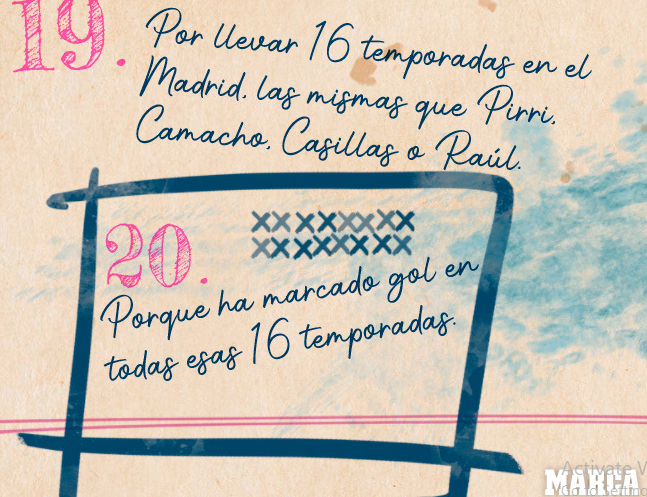 19.
Por llevar 16 temporadas en el
Madrid, las mismas que Pirri,
Camacho, Casillas o Raúl.
20.
XXXXXXXX
XXXXXXXX
Porque ha marcado gol en
todas esas 16 temporadas.
Activate
MARCA